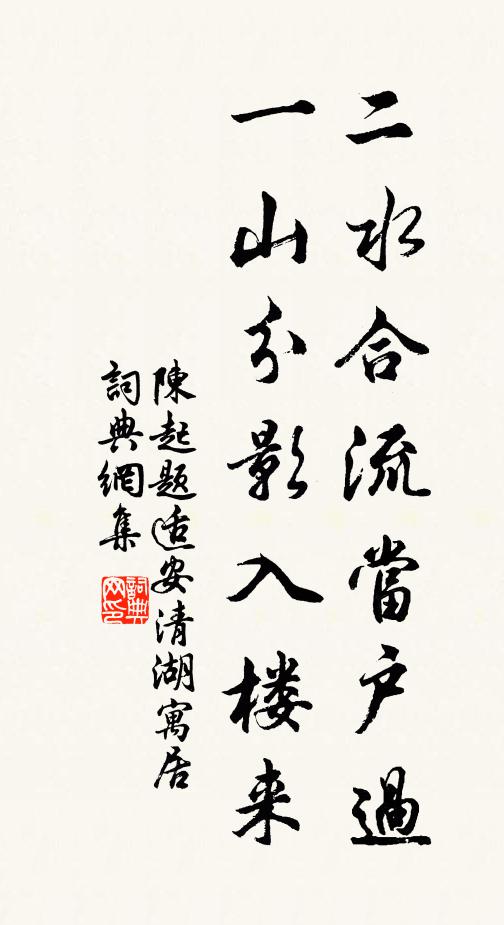 二水合流當户過
一山分影入楼来
陳起题适安清湖寓居
詞典網集
詞典網印